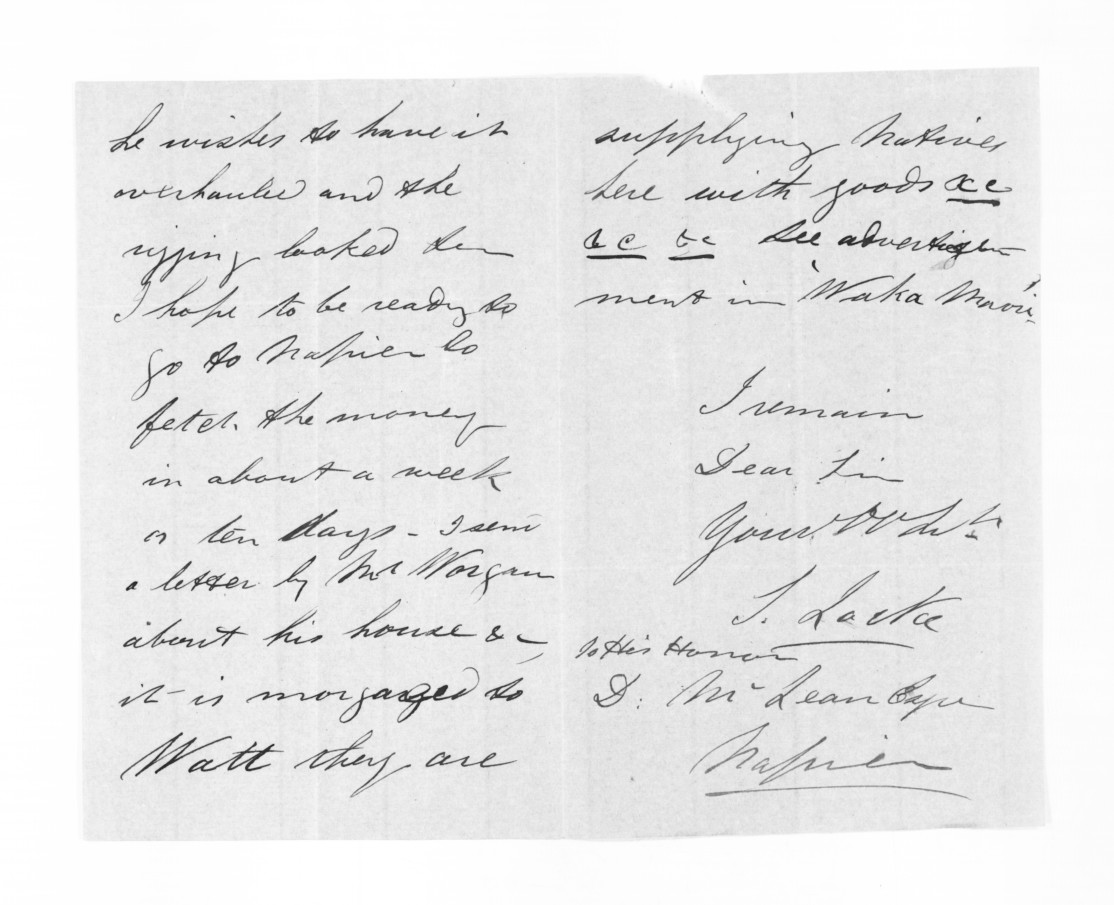 he wishes to have it
overhauled and the
rigging looked to
I hope to be ready to
go to Napier to
fetch the money
in about a week
or ten days - I send
a letter by Mr Worgan
about his house &c,
it is morgaged to
Watt they are
supplying Natives
here with goods &c
&c &c See advertise
ment in "Waka Maori"
I remain
Dear Sir
Your
S. Locke
To His Honor
D. McLean Esqre
Napier